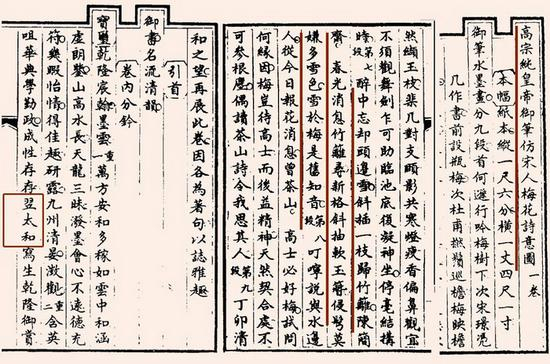 高宗純皇帝御筆仿宋人梅花詩意圖一卷
本幅紙本縱一尺六分橫一丈四尺一寸
御筆水墨畫分九段首何遜行吟梅樹下次宋璟凭
几作書前設瓶梅次杜甫撚鬚巡檐梅映檐
然纈玉枝柒几對支頤影共寒燈瘦香偏鼻觀宜
不須觀舞劍乍可助臨池底後凝神坐停毫結構
時段第七 醉中忘却頭邊雪斜插一枝歸竹籬陳簡
齋 春光消息竹籬尋新格斜抽軟玉簪侵鬢莫
嫌多雪色雪於梅是舊知音段第八 叮嚀說與水邊
人從今日報花消息曾茶山 高士必好梅試問
何緣因梅豈待高士而後益精神天然契合處不
可參根塵偶讀茶山詩令我思其人段第九 丁卯清
和之望再展此卷因各為著句以誌雅趣
引首
御書名流清韻
卷內分鈐
寶璽乾隆宸翰墨雲一重萬方安和多稼如雲中和涵
虛朗鑒山高水長天龍三昧潑墨會心不遠德充
符幾暇怡情得佳趣研露九州清晏澂觀二重含英
咀華典學勤政成性存存翌太和寫生乾隆御賞